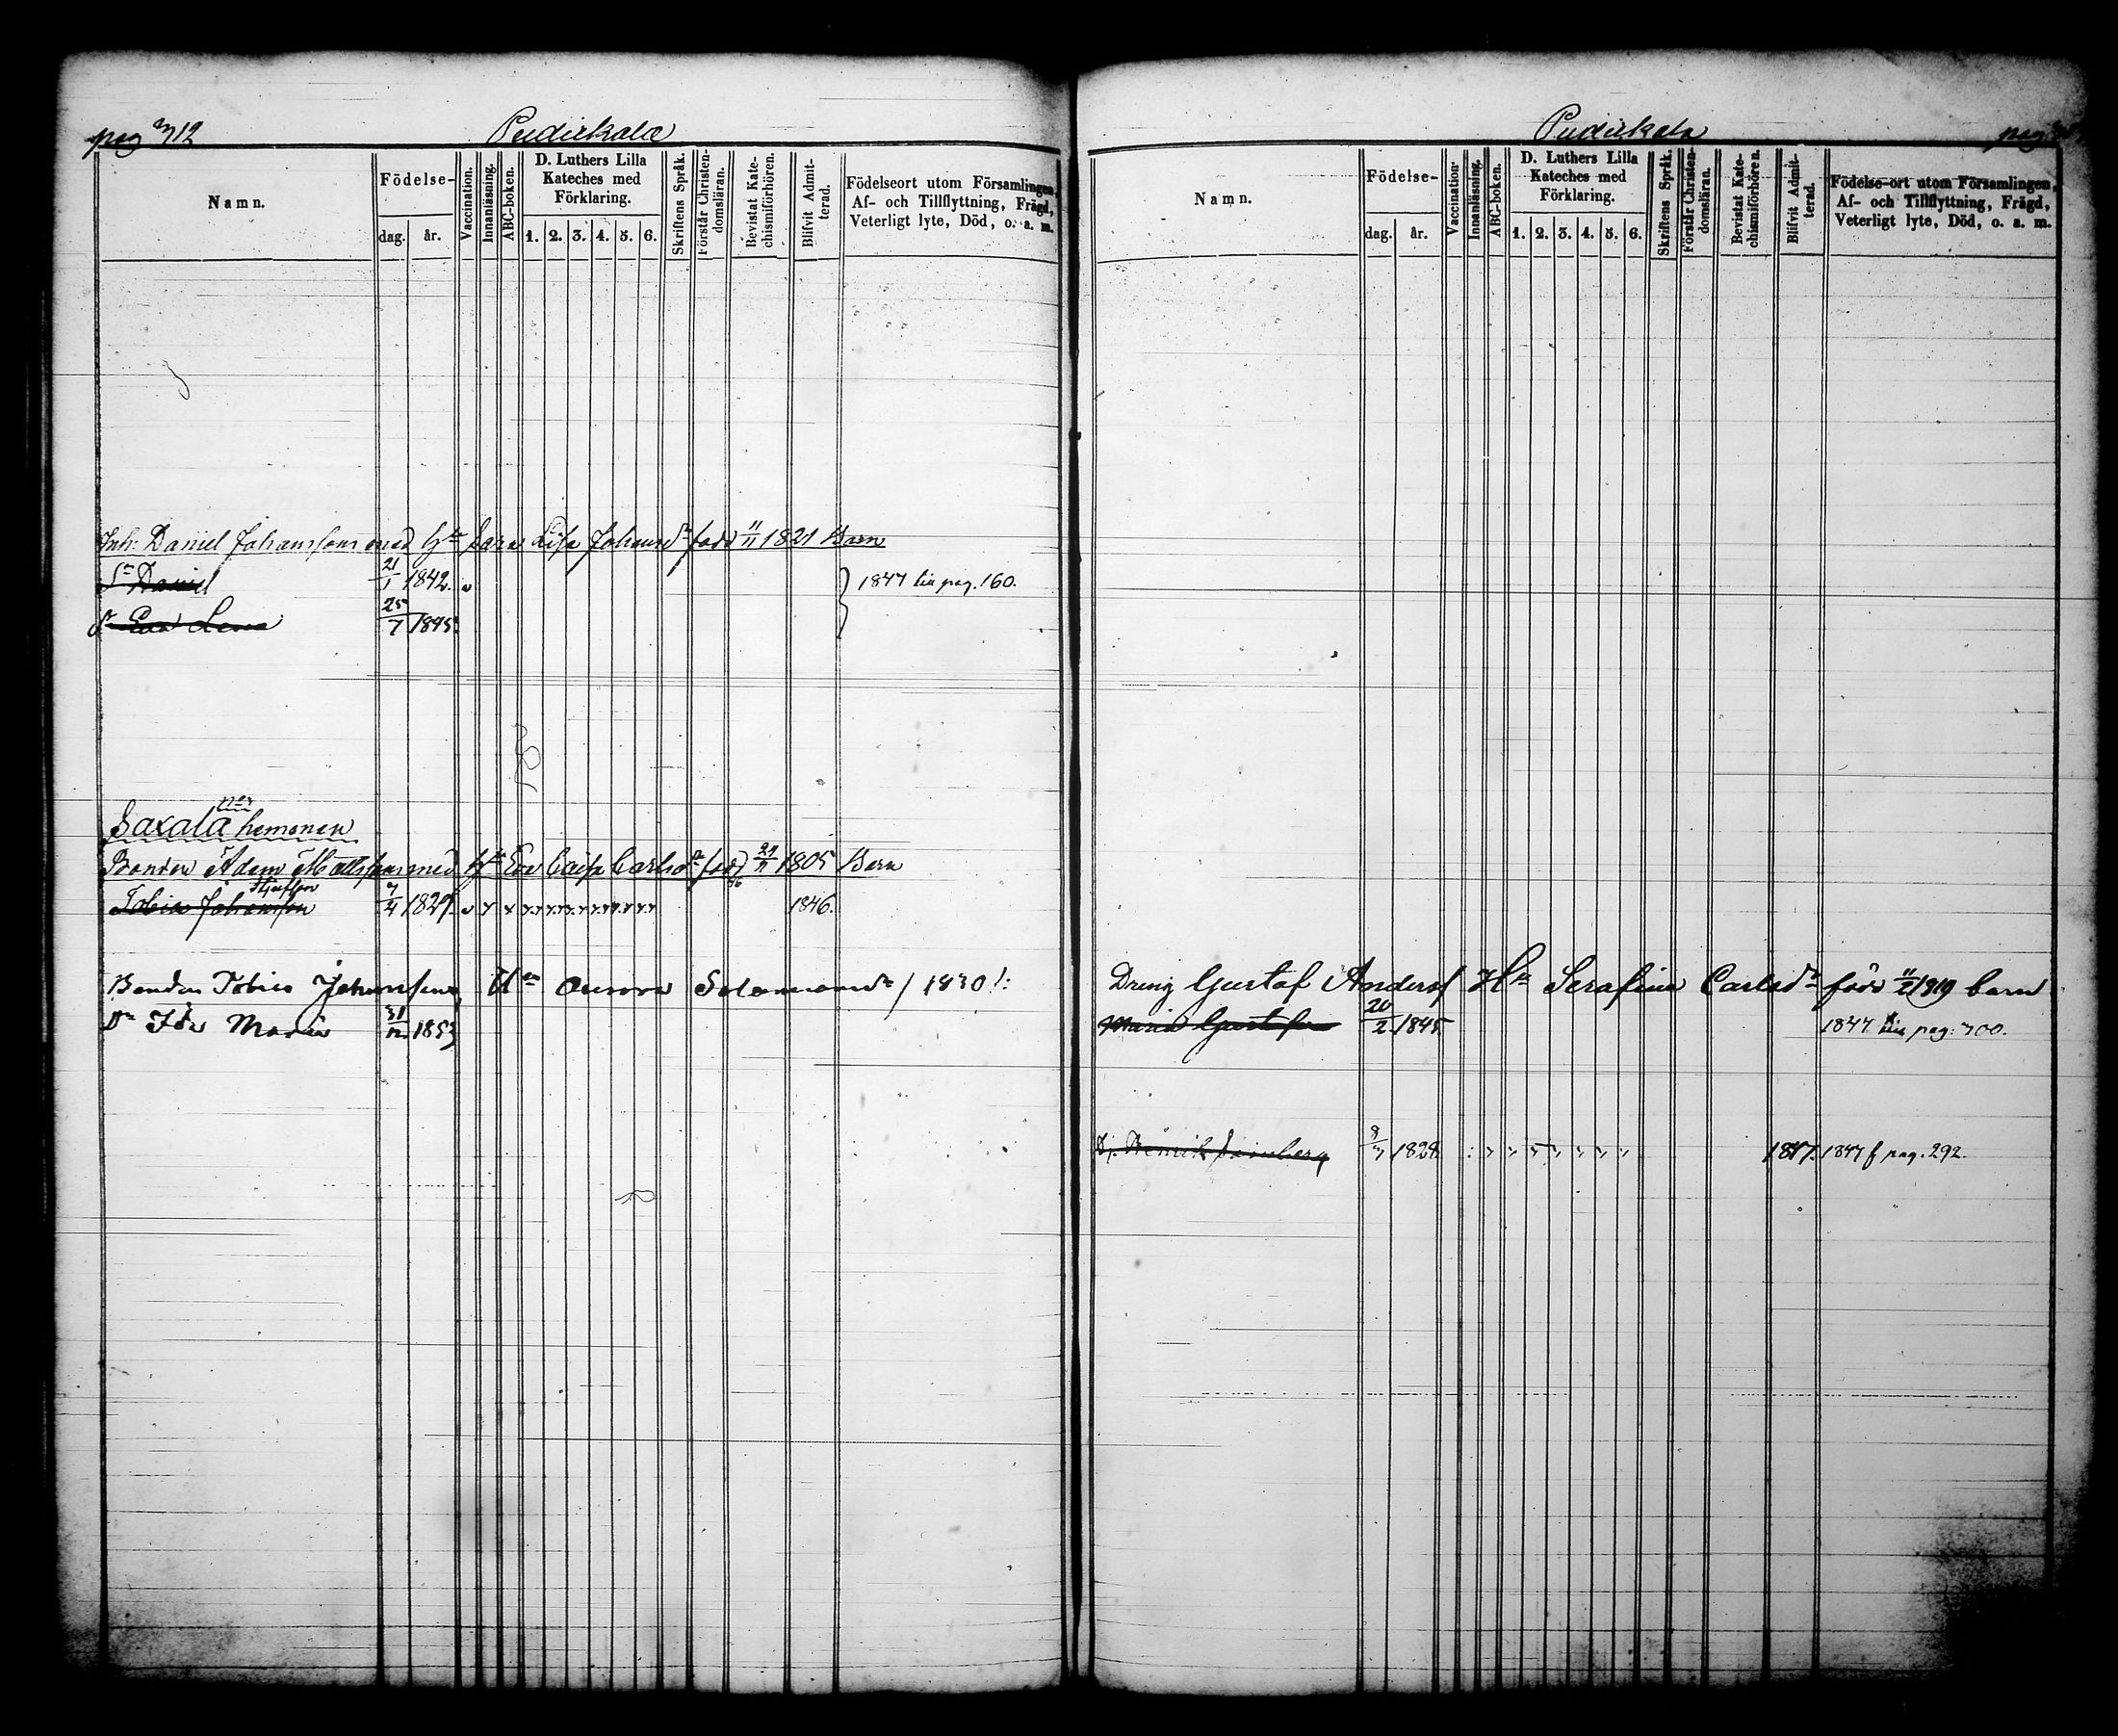 pag 312
Pudirkala
Namn.
Födelse-
dag. år.
Vaccination.
Innanläsning.
ABC-boken.
D. Luthers Lilla
Kateches med
Förklaring.
1. 2. 3. 4. 5. 6.
Skriftens Språk.
Förstår Christen-
domsläran.
Bevistat Kate-
chismiförhören.
Blifvit Admit-
terad.
Födelseort utom Församlingen,
Af- och Tillflyttning, Frägd,
Veterligt lyte, Död, o. a. m.
Inh: Daniel Johansson med Hu Sara Lisa Johansdr född 11/11 1821 Barn
Sn Daniel 21/1 1842. 1847 pag. 160.
Dr Eva Lena 25/7 1845.
Saxala hemanen
Bonden Adam Mattsson med Hu Eva Caisa Carlsdr född 1805 Barn
Styfson
Tobias Johansson 1829. 1846.
Bonden Tobias Johansson, Hu Aurora Salomonsdr / 1830 /:
Dr Ida Maria 31/12 1853
Pudirkala
pag.
Namn.
Födelse-
dag. år.
Vaccination.
Innanläsning.
ABC-boken.
D. Luthers Lilla
Kateches med
Förklaring.
1. 2. 3. 4. 5. 6.
Skriftens Språk.
Förstår Christen-
domsläran.
Bevistat Kate-
chismiförhören.
Blifvit Admit-
terad.
Födelse-ort utom Församlingen,
Af- och Tillflyttning, Frägd,
Veterligt lyte, Död, o. a. m.
Dreng Gustaf Anders Hu Serafina Carlsdr född 11/2 1819 barn
Maria Gustafva 20/2 1845 1847 pag: 700.
Henrik 1828 1847. 1847 f pag. 292.